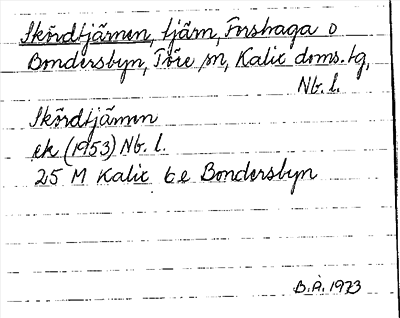 Skördtjärnen, tjärn, Forshaga o
Bondersbyn, Töre sn, Kalix doms.tg,
Nb. l.
Skördtjärnen
ek (1953) Nb. l.
25 M Kalix be Bondersbyn
B.Å. 1973